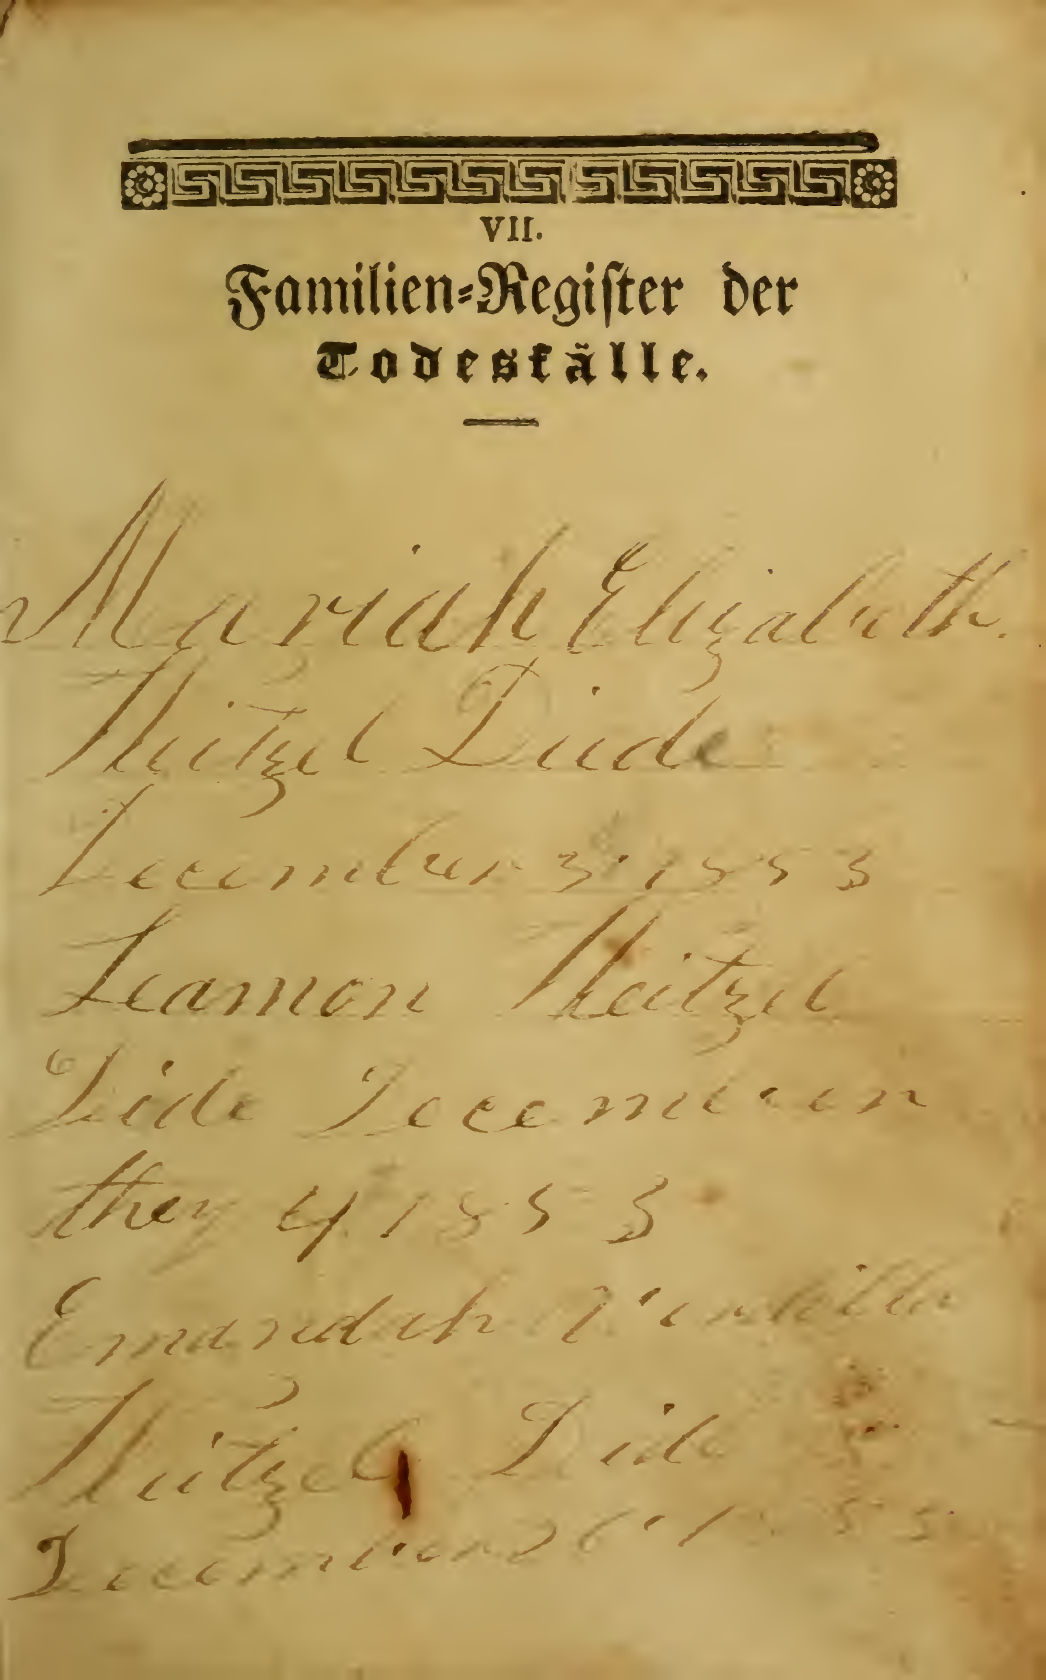 VII.
Familien-Register der
Todesfälle.
Mariah Elizabeth.
Neitzel Diede
December 3 1853
Leamon Neitzel
Dide Decemberen
they 4 1853
Emandah
Neitzel Dide
December 26 1853